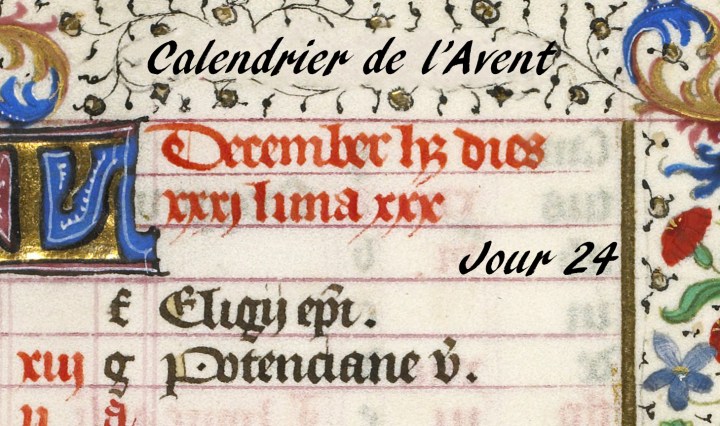 Calendrier de l'Avent
KL
December hꝫ dies
xxxi luna xxx
Jour 24
f Eligij ep̅i.
xiij g Potenciane v̅.
ij a